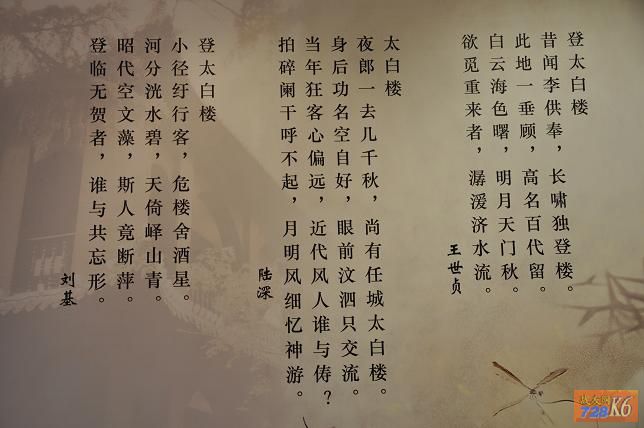 登太白楼
昔闻李供奉，长啸独登楼。
此地一垂顾，高名百代留。
白云海色曙，明月天门秋。
欲觅重来者，潺湲济水流。
王世贞
太白楼
夜郎一去几千秋，尚有任城太白楼。
身后功名空自好，眼前汶泗只交流。
当年狂客心偏远，近代风人谁与俦？
拍碎阑干呼不起，月明风细忆神游。
陆深
登太白楼
小径纡行客，危楼舍酒星。
河分洸水碧，天倚峄山青。
昭代空文藻，斯人竟断萍。
登临无贺者，谁与共忘形。
刘基
728K6